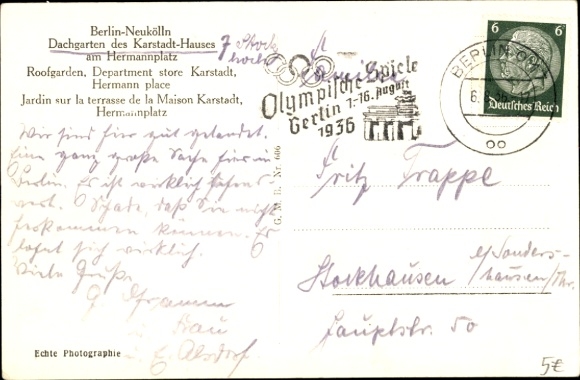 Berlin-Neukölln
Dachgarten des Karstadt-Hauses
am Hermannplatz
7 Stock
hoch
Roofgarden, Department store Karstadt,
Hermann place
Jardin sur la terrasse de la Maison Karstadt,
Hermannplatz
Wir sind hier gut gelandet.
Eine ganz große Sache hier in
Berlin. Es ist wirklich sehens
wert. Schade, daß Sie nicht
herkommen können. Es
lohnt sich wirklich.
Viele Grüße
Frau
E. Alsdorf.
Echte Photographie
G. M. B. Nr. 606
Olympische Spiele
Berlin 1.-16. August
1936
BERLIN OO
6
6
Deutsches Reich
Fritz Trappe
Stockhausen
b/Sonders-
hausen/Thr.
Hauptstr. 50
5€